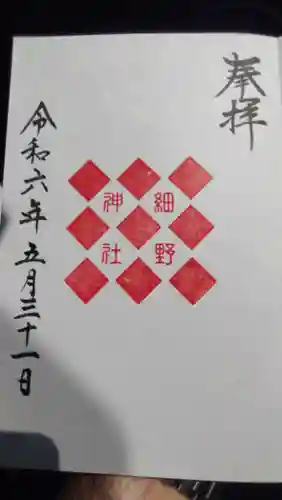 奉拝
細野
神社
令和六年五月三十一日